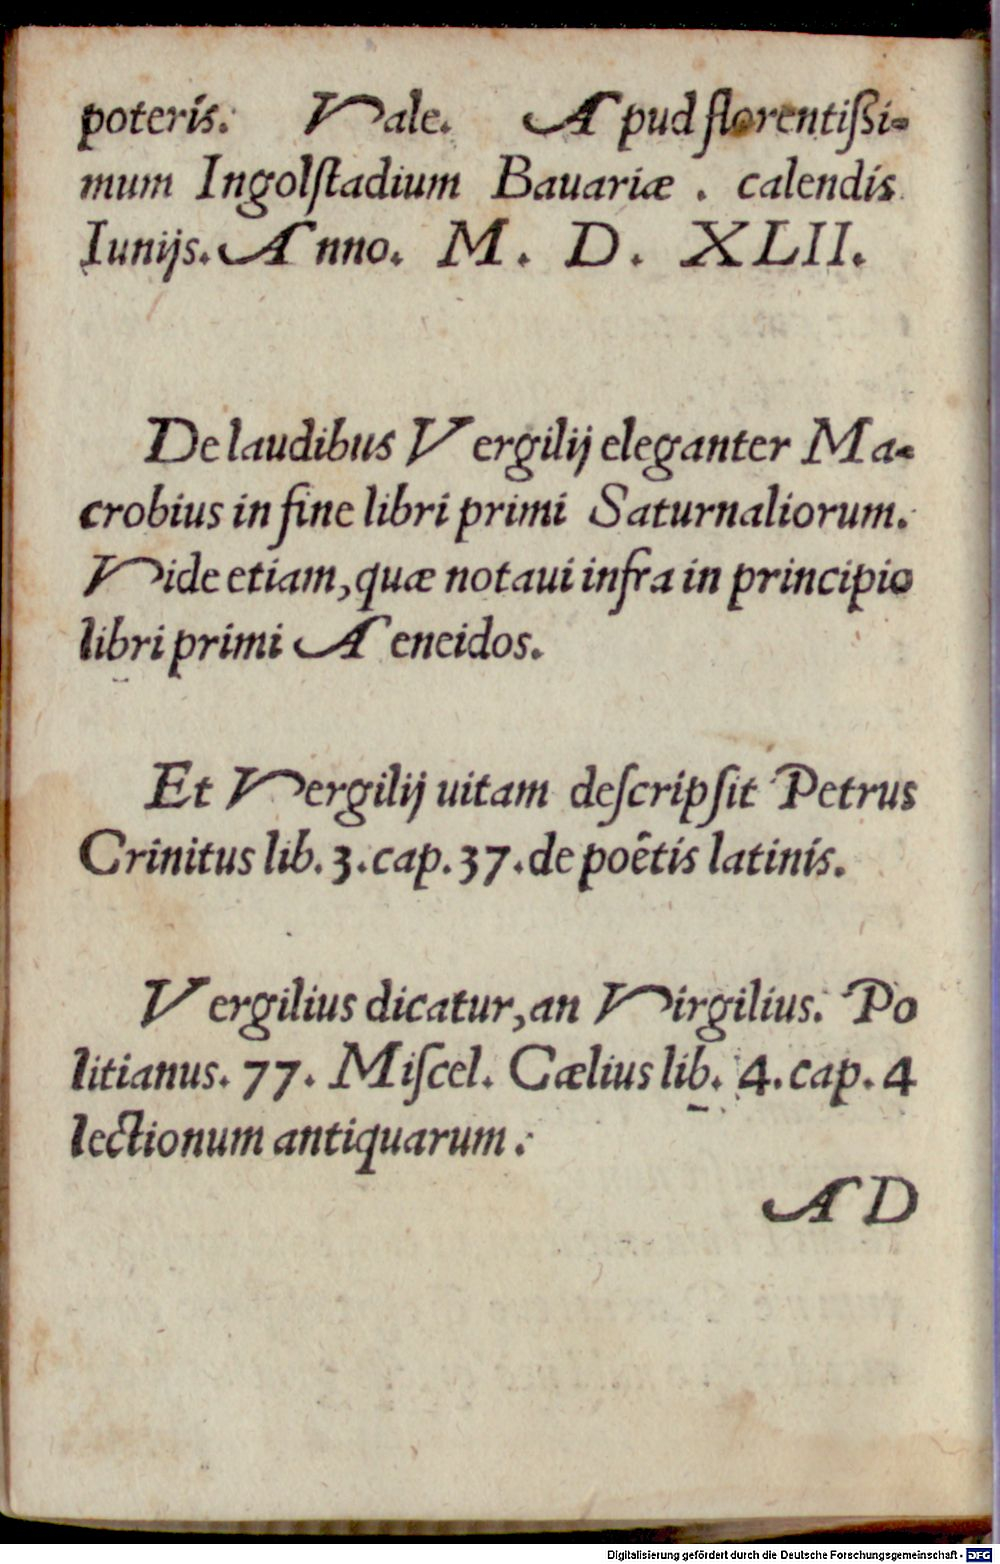 poteris. Vale. Apud florentißi-
mum Ingolſtadium Bauariæ . calendis
Iunijs. Anno. M. D. XLII.
De laudibus Vergilij eleganter Ma-
crobius in fine libri primi Saturnaliorum.
Vide etiam, quæ notaui infra in principio
libri primi Aeneidos.
Et Vergilij uitam deſcripſit Petrus
Crinitus lib. 3. cap. 37. de poêtis latinis.
Vergilius dicatur, an Virgilius. Po
litianus. 77. Miſcel. Cælius lib. 4. cap. 4
lectionum antiquarum.
AD
Digitalisierung gefördert durch die Deutsche Forschungsgemeinschaft - DFG